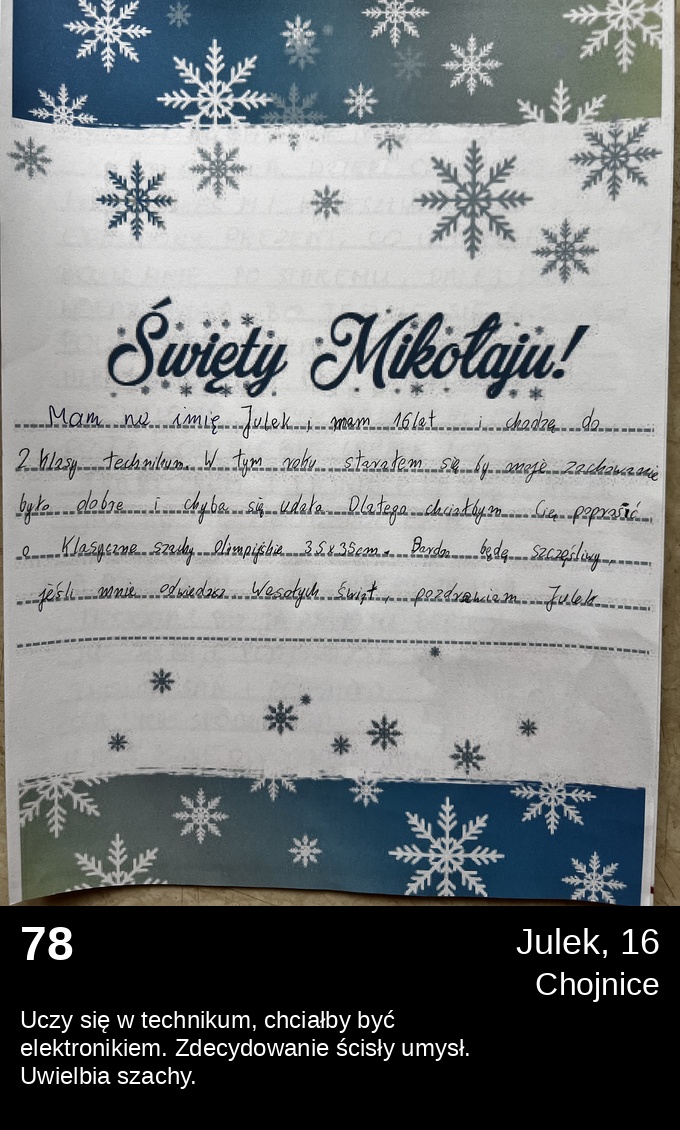 Święty Mikołaju!
Mam na imię Julek i mam 16 lat i chodzę do
2 klasy technikum. W tym roku starałem się by moje zachowanie
było dobre i chyba się udało Dlatego chciałbym Cię poprosić
o Klasyczne szachy Olimpijskie 35x35cm. Bardzo będę szczęśliwy,
jeśli mnie odwiedzisz Wesołych świąt, pozdrawiam Julek
78
Julek, 16
Chojnice
Uczy się w technikum, chciałby być
elektronikiem. Zdecydowanie ścisły umysł.
Uwielbia szachy.